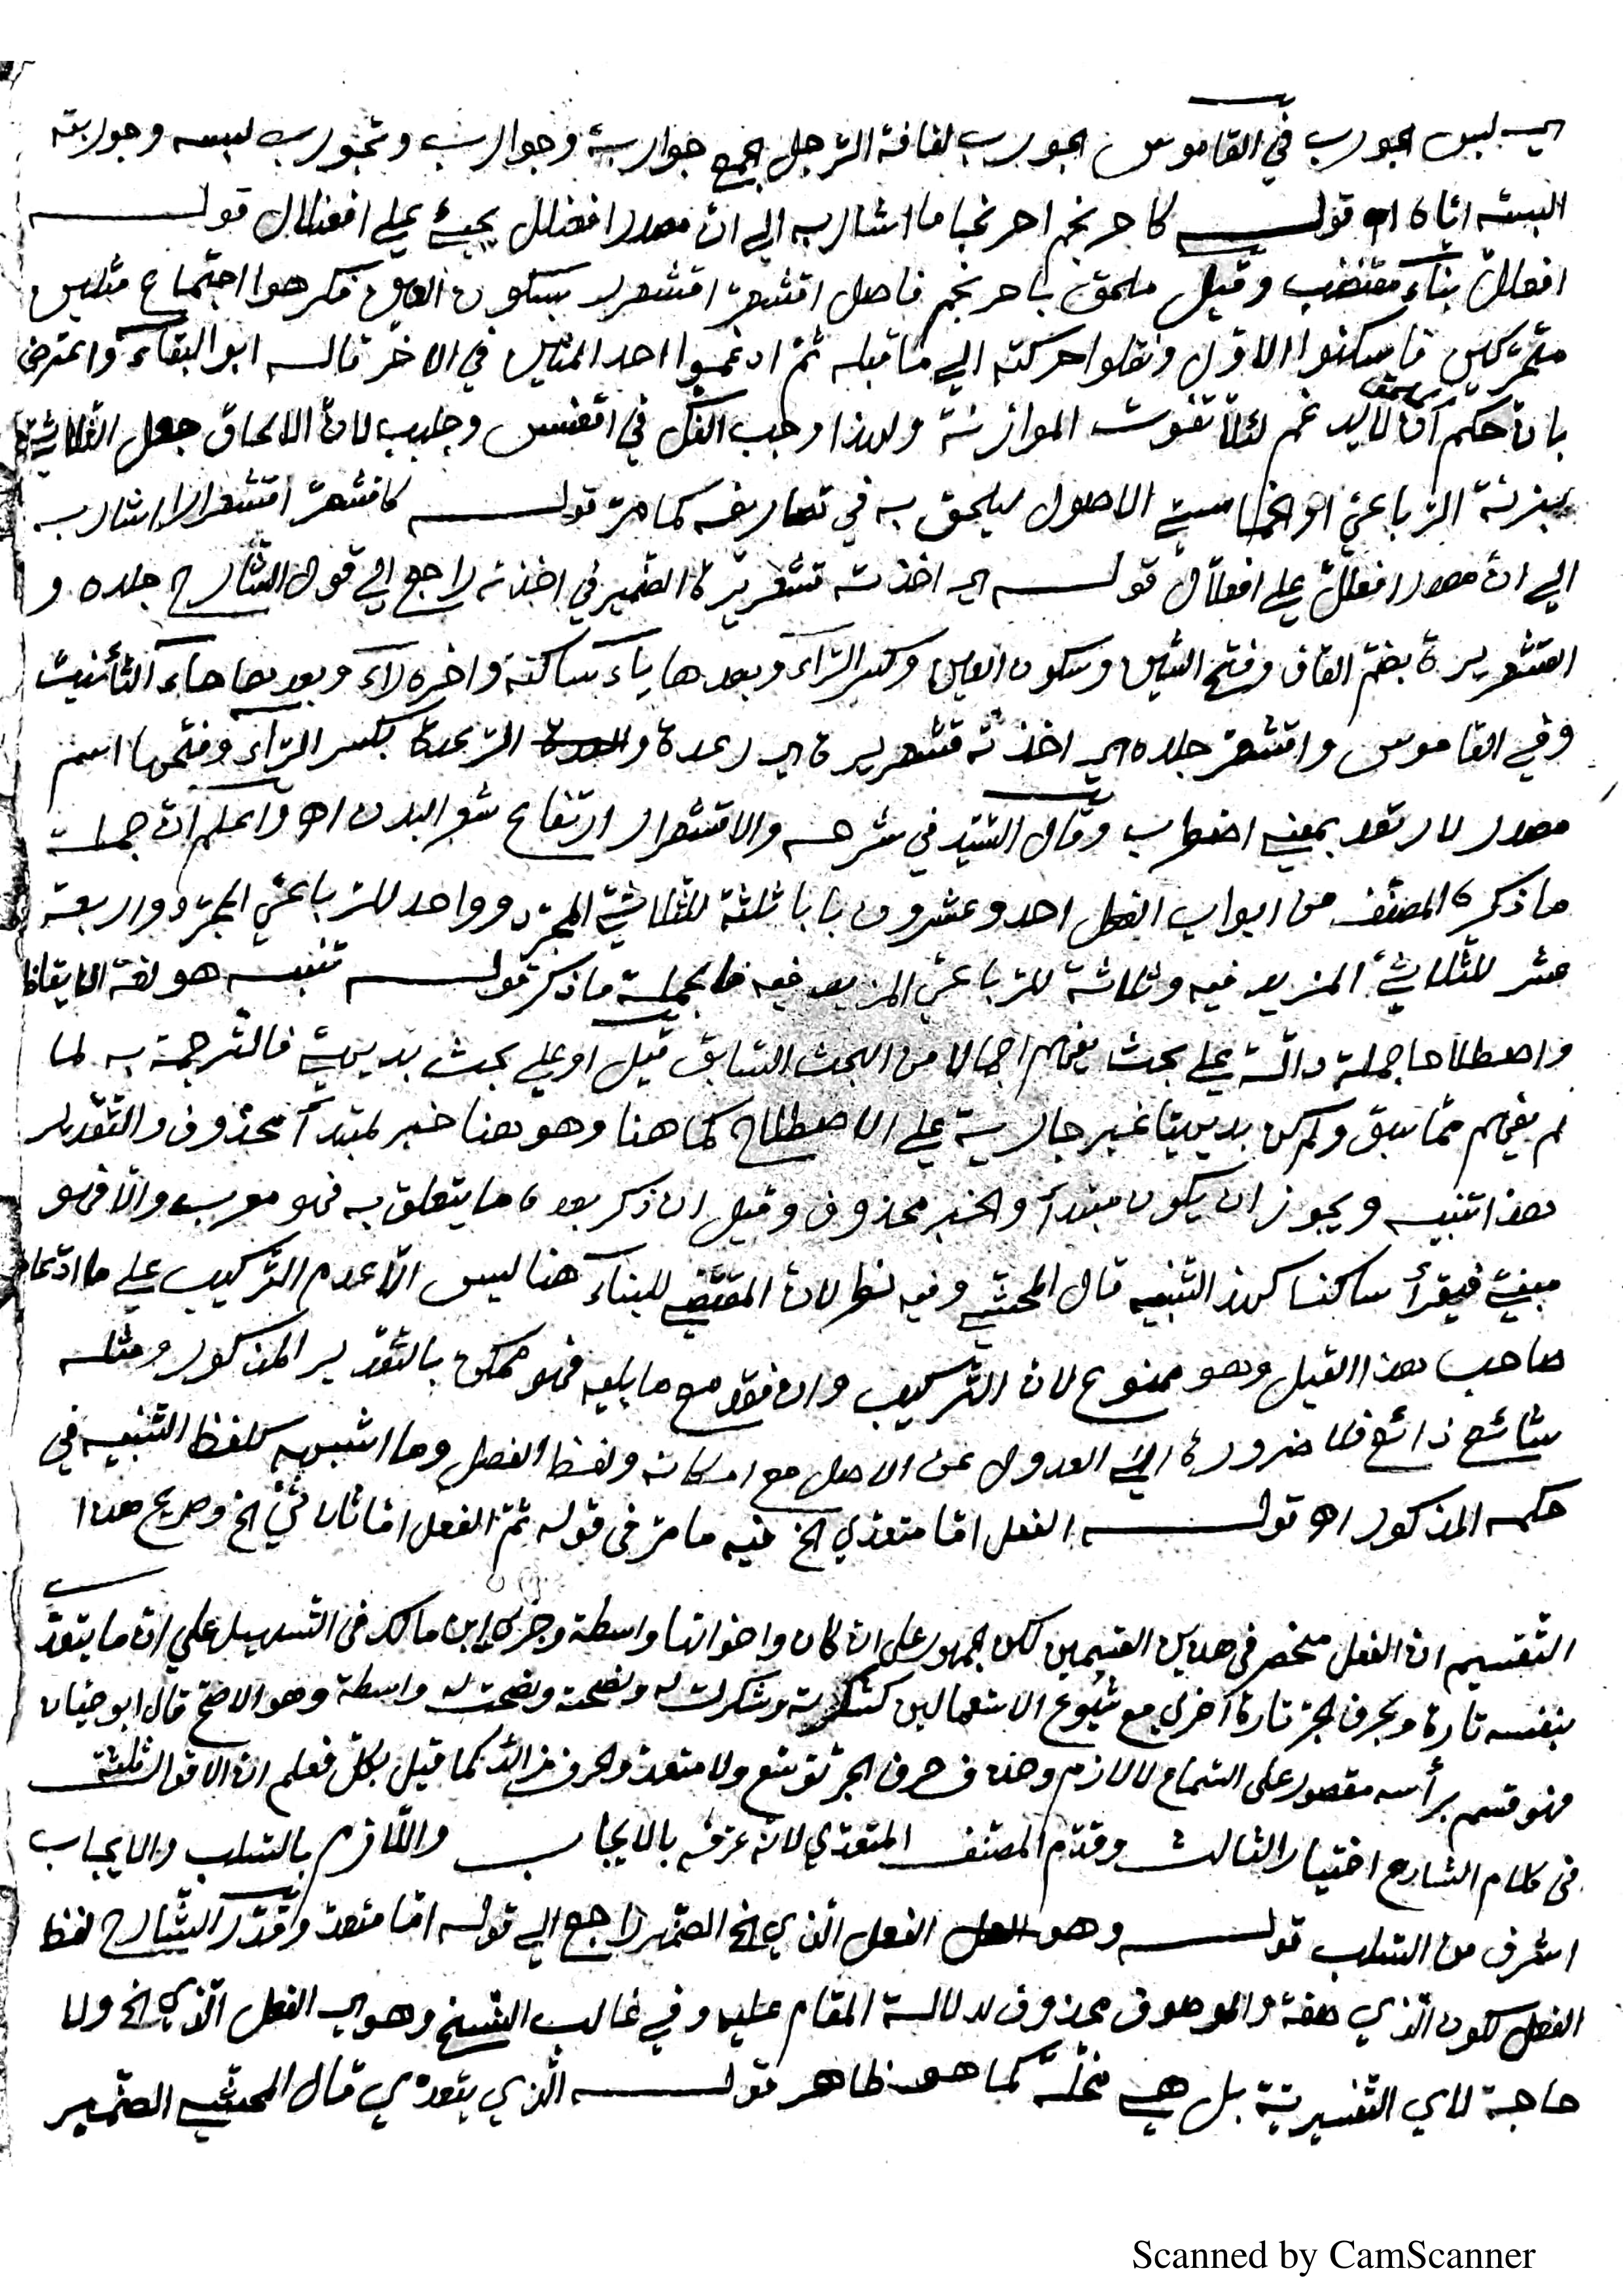 اي لبس الجورب في القاموس الجورب لفافة الرّجل الجمع جواربة وجوارب وتجورب لبسه وجوربته
البسته اياه اه قوله كاحرنجم احرنجاما اشار به الى انّ مصدر افعنلل يجيئ على افعنلال قوله
افعللّ بناء مقتضب وقيل ملحق باحرنجم فاصل اقشعرّ اقشعرر بسكون العين فكرهوا اجتماع مثلين
متحرّكين فاسكنوا الاوّل ونقلوا حركته الى ما قبله ثمّ ادغموا احد المثلين في الاخر قاله ابو البقاء واعترض
بانّ حكم ان لا يدغم لئلّا تفوت الموازنة ولهذا وجب الفكّ في اقعنسس وجلبب لانّ الالحاق جعل الثّلاثيّ
بزنة الرّباعيّ او الخماسيّ الاصول ليلحق به في تصاريفه كما مرّ قوله كاقشعرّ اقشعرارا اشار به
الى انّ مصدر افعللّ على افعلّال قوله اي اخذته قشعريرة الضّمير في اخذته راجع الى قول الشّارح جلده و
القشعريرة بضمّ القاف وفتح الشّين وسكون العين وكسر الرّاء وبعدها ياء ساكنة واخره راء وبعدها هاء التّأنيث
وفي القاموس واقشعرّ جلده اي اخذته قشعريرة اي رعدة والرّعدة بكسر الرّاء وفتحها اسم
مصدر لارتعد بمعنى اضطرب وقال السّيّد في شرحه والاقشعرار ارتفاع شعر البدن اه واعلم انّ جملة
ما ذكره المصنّف من ابواب الفعل احد وعشرون بابا ثلثة للثّلاثيّ المجرّد وواحد للرّباعيّ المجرّد واربعة
عشر للثّلاثيّ المزيد فيه وثلاثة للرّباعيّ المزيد فيه ما ذكر قوله تنبيه هو لغة الايقاظ
واصطلاحا جملة دالّة على بحث يفهم اجمالا من البحث السّابق قيل او على بحث بديهيّ فالتّرجمة به لما
لم يفهم ممّا سبق ولم يكن بديهيّا غير جارية على الاصطلاح كما هنا وهو هنا خبر لمبتدأ محذوف والتّقدير
هذا تنبيه ويجوز ان يكون مبتدأ والخبر محذوف وقيل ان ذكر بعده ما يتعلق به فهو معرب والّا فهو
مبنيّ فيقرأ ساكنا كهذا التّنبيه قال المحشّي وفيه نظر لانّ المقتضي للبناء هنا ليس الّا عدم التّركيب على ما ادّعاه
صاحب هذا القيل وهو ممنوع لانّ التّركيب وان فقد مع ما يليه فهو ممكن بالتّقدير المذكور ومثله
شائع ذائع فلا ضرورة الى العدول عن الاصل مع امكانه ولفظ الفصل وما اشبهه كلفظ التّنبيه في
حكمه المذكور اه قوله الفعل امّا متعدّي الخ فيه ما مرّ فى قوله ثمّ الفعل امّا ثلاثيّ الخ وصريح هذا
التّقسيم انّ الفعل منحصر فى هذين القسمين لكن الجمهور على انّ كان واخواتها واسطة وجرى ابن مالك فى التّسهيل على انّ ما يتعدّى
بنفسه تارة وبحرف الجرّ تارة اخرى مع شيوع الاستعمالين كشكرته وشكرت له ونصحته ونصحت له واسطة وهو الاصحّ قال ابو حيّان
فهو قسم برأسه مقصور على السّماع لا لازم وحذف حرف الجرّ توسّع ولا متعدّ والحرف زائد كما قيل بكلّ فعلم انّ الاقوال ثلثة
فى كلام الشارح اختيار الثالث وقدّم المصنّف المتعدّي لانّه عرّفه بالايجاب واللّازم بالسّلب والايجاب
اشرف من السّلب قوله وهو الفعل الّذي الخ الضّمير راجع الى قوله امّا متعدّ وقدّر الشّارح لفظ
الفعل لكون الّذي صفة والموصوف محذوف لدلالة المقام عليه وفي غالب النّسخ وهو اي الفعل الّذي الخ ولا
حاجة لاي التّفسيريّة بل هي مخلّة كما هو ظاهر قوله الّذي يتعدّي قال المحشّي الضّمير
Scanned by CamScanner